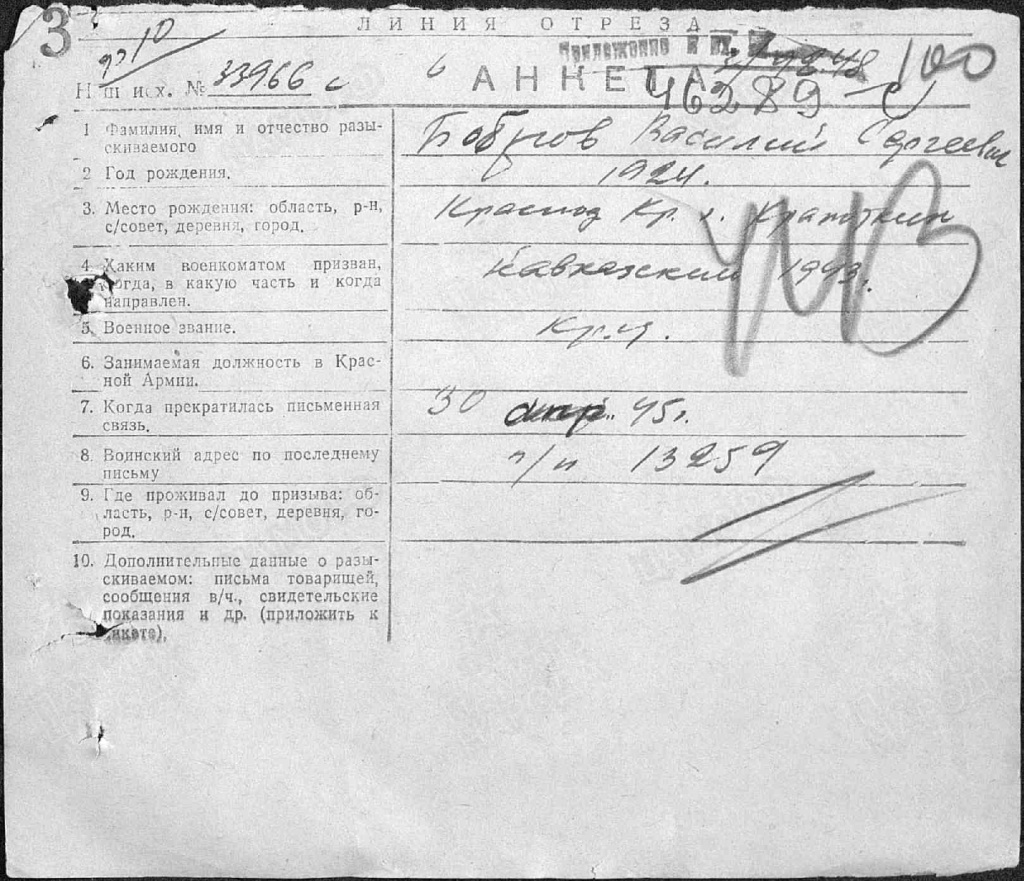 ЛИНИЯ ОТРЕЗА
3
10
Приложение к
Наш исх. № 33966 с
АНКЕТА
100
46289
1 Фамилия, имя и отчество разы-
скиваемого
Бобров Василий Сергеевич
2 Год рождения.
1924.
3. Место рождения: область, р-н,
с/совет, деревня, город.
Краснод Кр. г. Крапоткин
4 Каким военкоматом призван,
когда, в какую часть и когда
направлен.
Кавказским 1943г.
5. Военное звание.
Кр-ц.
6. Занимаемая должность в Крас-
ной Армии.
7. Когда прекратилась письменная
связь.
30 апр. 45г.
8. Воинский адрес по последнему
письму
п/п 13259
9. Где проживал до призыва: об-
ласть, р-н, с/совет, деревня, го-
род.
10. Дополнительные данные о разы-
скиваемом: письма товарищей,
сообщения в/ч., свидетельские
показания и др. (приложить к
анкете).